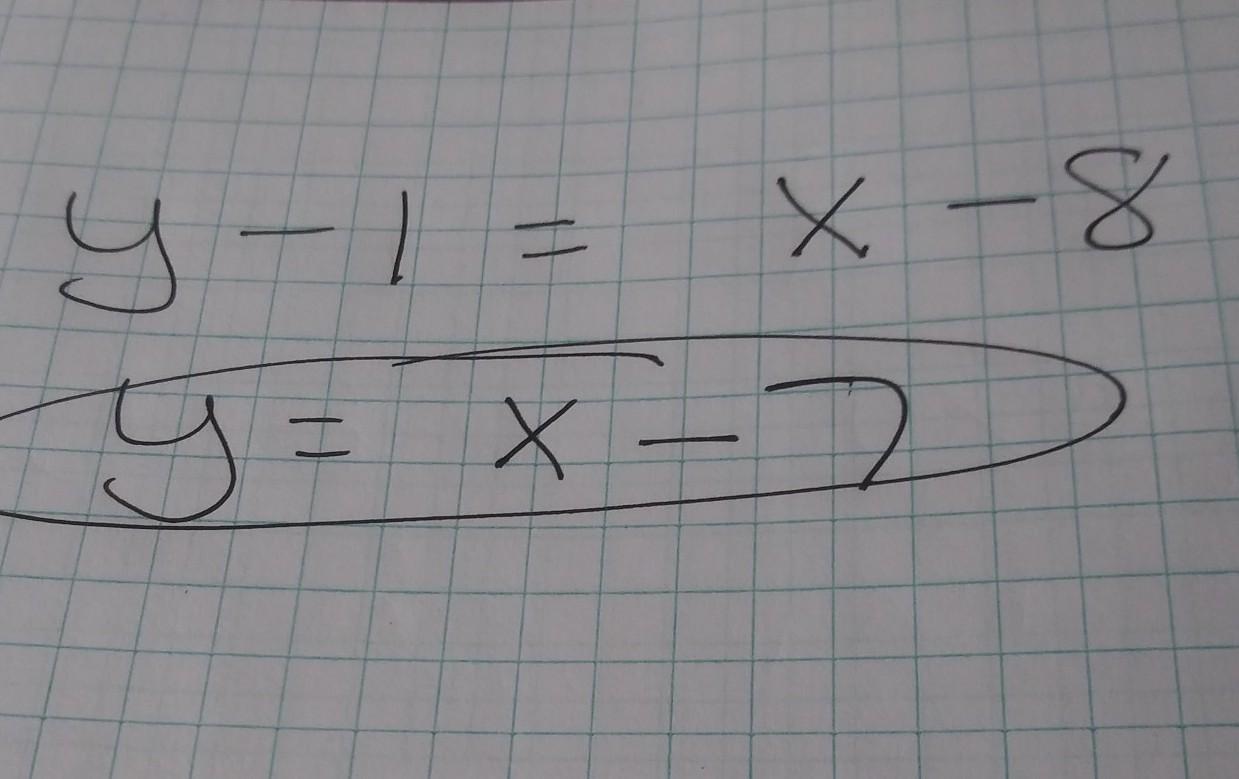 y - 1 = x - 8
y = x - 7